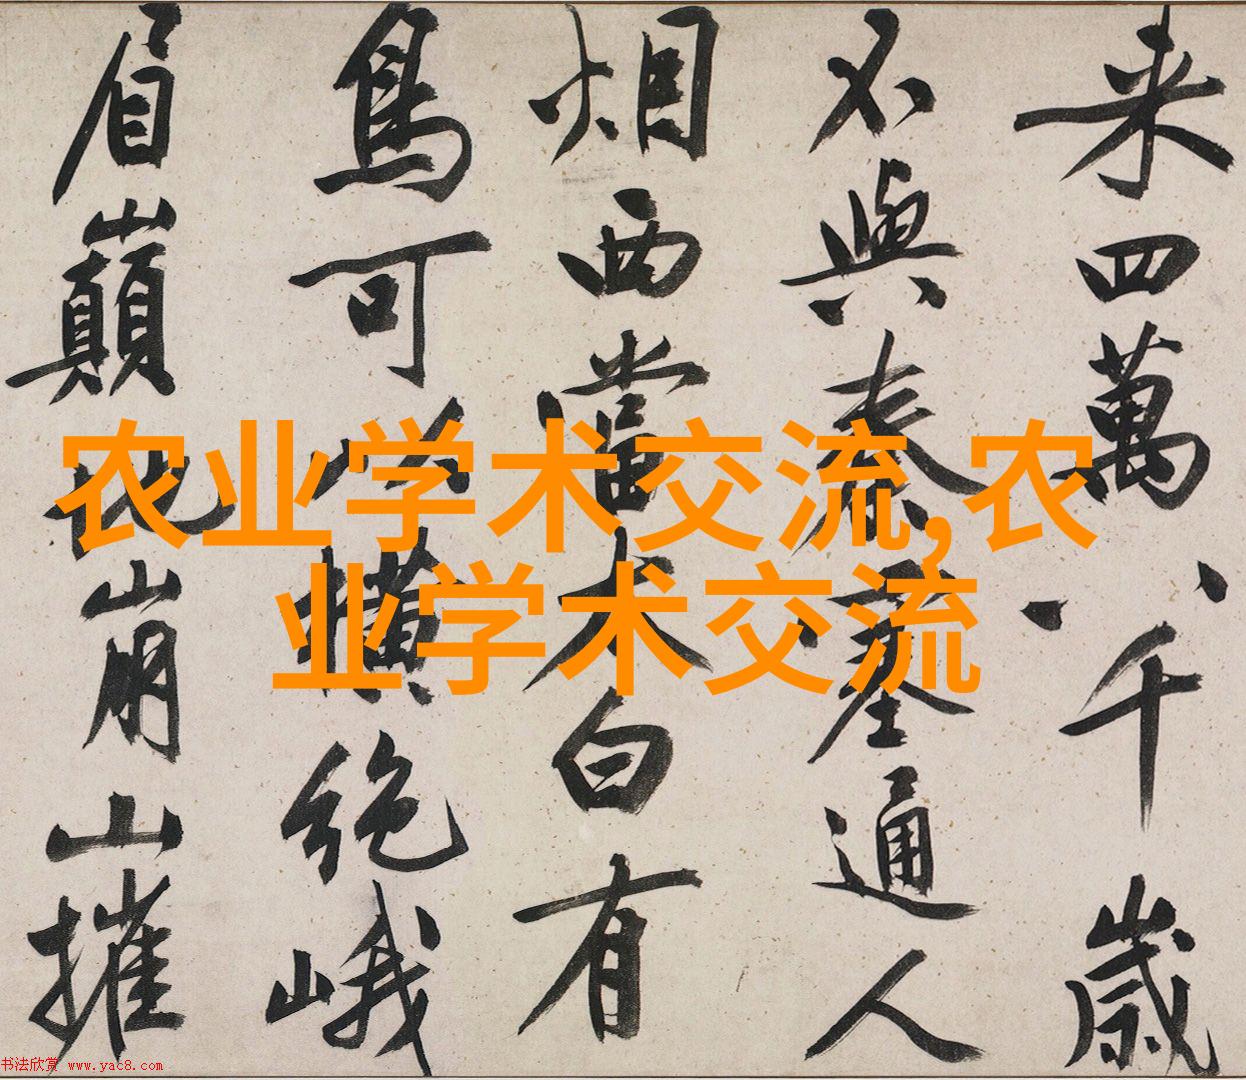 来四萬八千歲
不與秦塞通人
烟西當太白有
鳥可以橫絶峨
眉巔地崩山摧
农业学术交流,农
业学术交流
书法欣赏 www.yac8.com